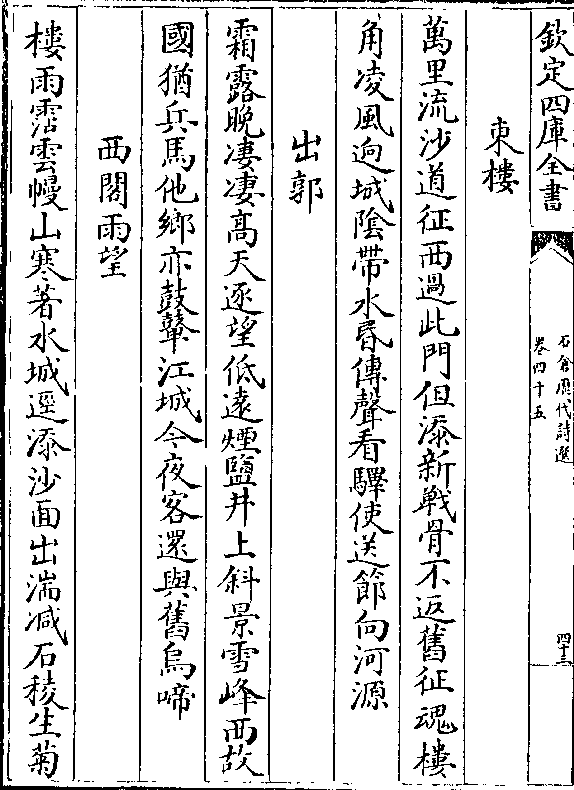 欽定四庫全書
石倉歷代詩選
卷四十五
四十三
東樓
萬里流沙道征西過此門但添新戰骨不返舊征魂樓
角凌風迥城隂帶水昏傳聲看驛使送節向河源
出郭
霜露晚凄凄髙天逐望低逺煙鹽井上斜景雪峰西故
國猶兵馬他鄉亦鼓鼙江城今夜客還與舊烏啼
西閣雨望
樓雨霑雲幔山寒著水城逕添沙面出湍减石稜生菊